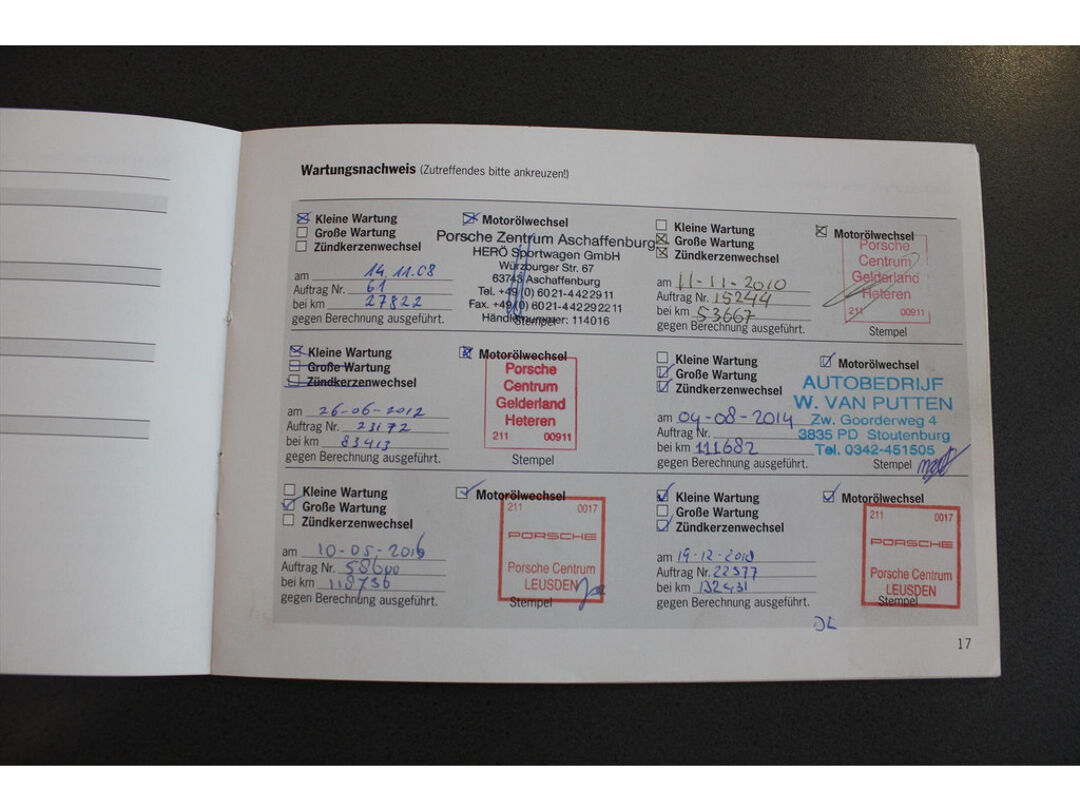 Wartungsnachweis (Zutreffendes bitte ankreuzen!)
Kleine Wartung
Große Wartung
Zündkerzenwechsel
Motorölwechsel
am 14.11.08
Auftrag Nr. 61
bei km 27822
gegen Berechnung ausgeführt.
Porsche Zentrum Aschaffenburg
HERÖ Sportwagen GmbH
Würzburger Str. 67
63743 Aschaffenburg
Tel. +49 (0) 6021-4422911
Fax. +49 (0) 6021-442292211
Händlernummer: 114016
Stempel
Kleine Wartung
Große Wartung
Zündkerzenwechsel
Motorölwechsel
am 11-11-2010
Auftrag Nr. 15244
bei km 53667
gegen Berechnung ausgeführt.
Porsche
Centrum
Gelderland
Heteren
211 00911
Stempel
Kleine Wartung
Große Wartung
Zündkerzenwechsel
Motorölwechsel
am 26-06-2012
Auftrag Nr. 23172
bei km 83413
gegen Berechnung ausgeführt.
Porsche
Centrum
Gelderland
Heteren
211 00911
Stempel
Kleine Wartung
Große Wartung
Zündkerzenwechsel
Motorölwechsel
am 04-08-2014
Auftrag Nr.
bei km 111682
gegen Berechnung ausgeführt.
AUTOBEDRIJF
W. VAN PUTTEN
Zw. Goorderweg 4
3835 PD Stoutenburg
Tel. 0342-451505
Stempel
Kleine Wartung
Große Wartung
Zündkerzenwechsel
Motorölwechsel
am 10-05-2016
Auftrag Nr. 58600
bei km 118736
gegen Berechnung ausgeführt.
211 0017
PORSCHE
Porsche Centrum
LEUSDEN
Stempel
Kleine Wartung
Große Wartung
Zündkerzenwechsel
Motorölwechsel
am 19-12-2018
Auftrag Nr. 22377
bei km 132431
gegen Berechnung ausgeführt.
211 0017
PORSCHE
Porsche Centrum
LEUSDEN
Stempel
17